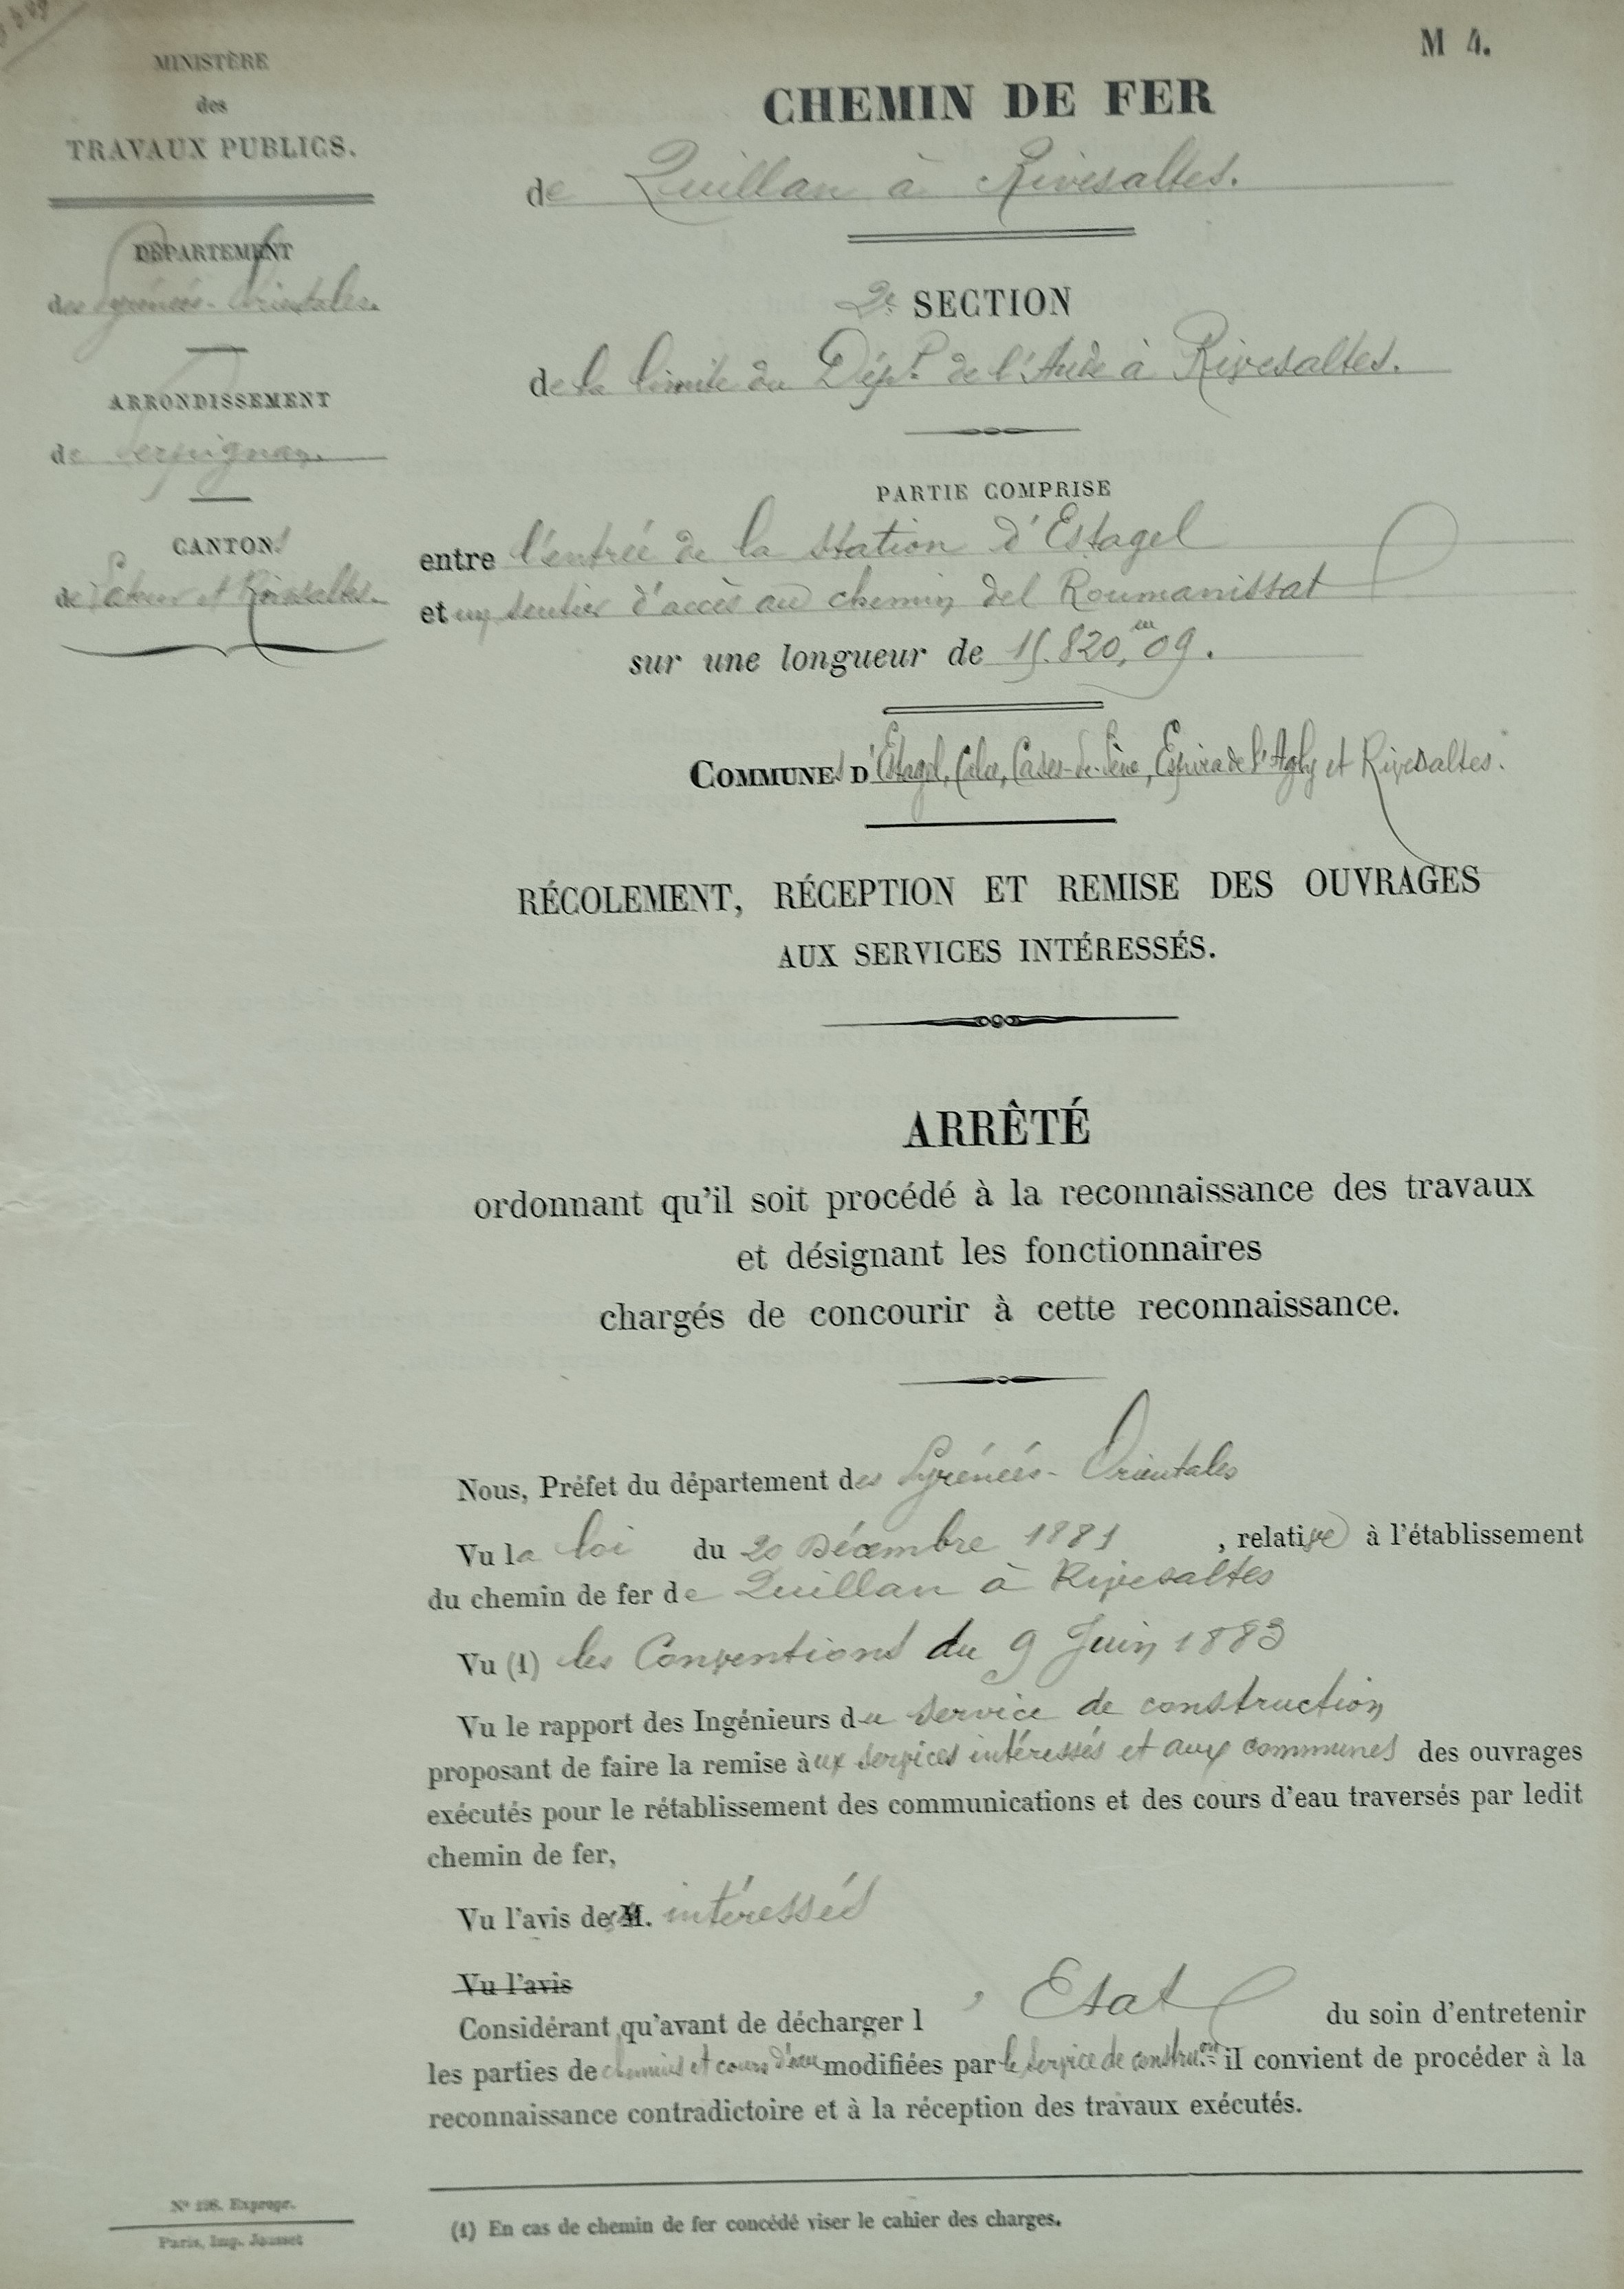 M 4.
MINISTÈRE
des
TRAVAUX PUBLICS.
DÉPARTEMENT
des Pyrénées-Orientales.
ARRONDISSEMENT
de Perpignan.
CANTONs
de Latour et Rivesaltes.
CHEMIN DE FER
de Quillan à Rivesaltes.
2e SECTION
de la limite du Dépt. de l'Aude à Rivesaltes.
PARTIE COMPRISE
entre l'entrée de la station d'Estagel
et un sentier d'accès au chemin del Roumanissat
sur une longueur de 15.820,m09.
COMMUNEs D'Estagel, Calce, Cases-de-Pène, Espira de l'Agly et Rivesaltes.
RÉCOLEMENT, RÉCEPTION ET REMISE DES OUVRAGES
AUX SERVICES INTÉRESSÉS.
ARRÊTÉ
ordonnant qu'il soit procédé à la reconnaissance des travaux
et désignant les fonctionnaires
chargés de concourir à cette reconnaissance.
Nous, Préfet du département des Pyrénées-Orientales
Vu la loi du 20 Décembre 1881, relative à l'établissement
du chemin de fer de Quillan à Rivesaltes
Vu (1) les Conventions du 9 Juin 1883
Vu le rapport des Ingénieurs du service de construction
proposant de faire la remise aux services intéressés et aux communes des ouvrages
exécutés pour le rétablissement des communications et des cours d'eau traversés par ledit
chemin de fer,
Vu l'avis des M. intéressés
Vu l'avis
Considérant qu'avant de décharger l'Etat du soin d'entretenir
les parties de chemins et cours d'eau modifiées par le service de constru.on il convient de procéder à la
reconnaissance contradictoire et à la réception des travaux exécutés.
(1) En cas de chemin de fer concédé viser le cahier des charges.
Expropr.
Paris, Imp. Jousset